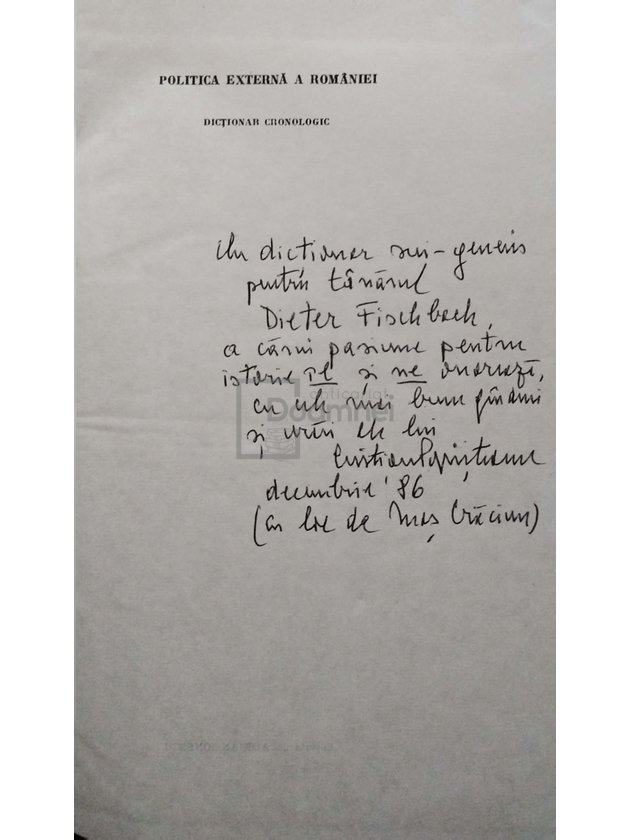 POLITICA EXTERNĂ A ROMÂNIEI
DICȚIONAR CRONOLOGIC
Un dicționar sui-generis
pentru tânărul
Dieter Fischbach,
a cărui pasiune pentru
istorie îl și ne onorează,
cu cele mai bune gânduri
și urări ale lui
Cristian Popișteanu
decembrie '86
(în loc de Moș Crăciun)
Anticariat
Doamnei